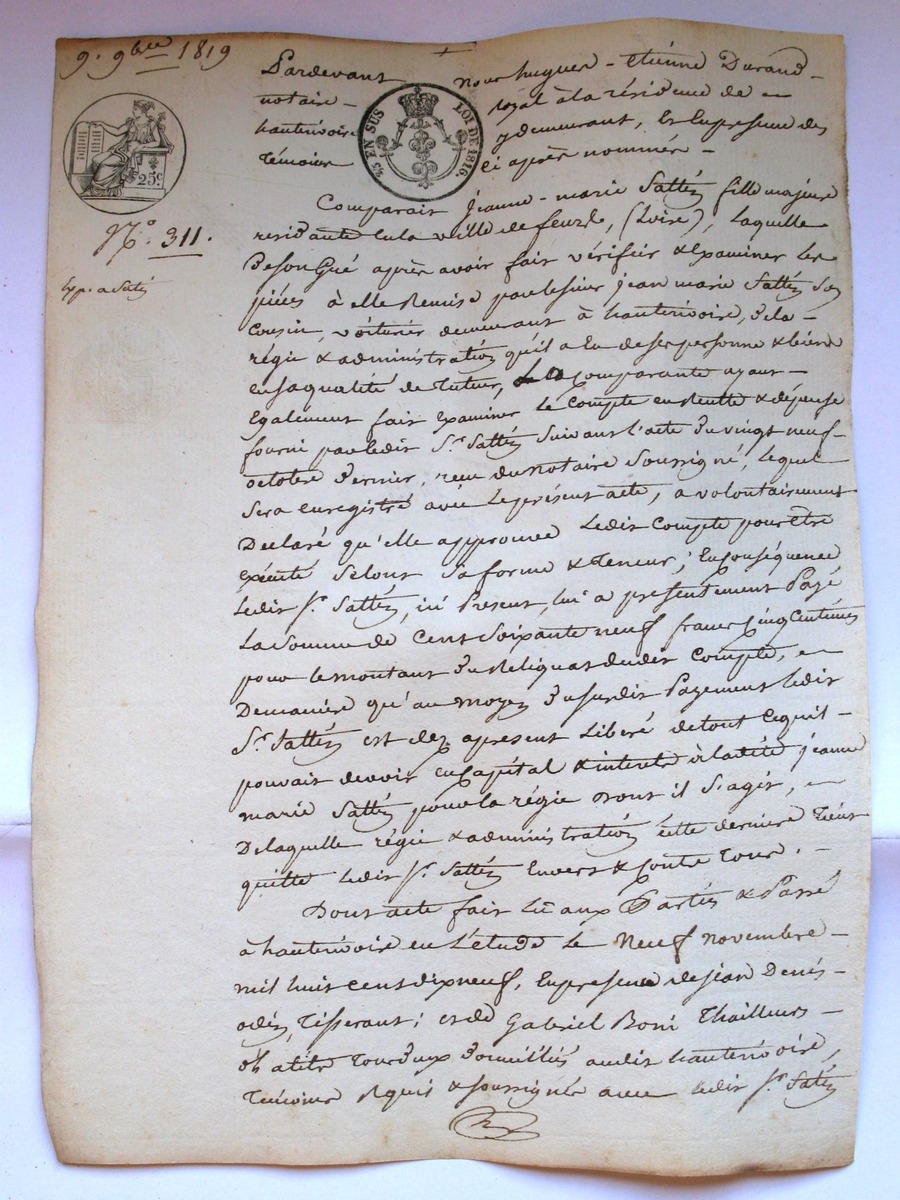 9. 9bre 1819
Pardevant nous hugues - étienne Durand -
notaire - royal à la résidence de
hauterivoire y demeurant, En présence des
témoins ci après nommés -
25 EN SUS LOI DE 1816.
25c.
N.o 311.
Comparait jeanne - marie fille majeure
residante en la ville de feurs, (Loire), laquelle
De son Gré après avoir fait vérifier & Examiner les
pièces à elle Remise par le sieur jean marie son
cousin, voiturier demeurant à hauterivoire, de la -
régie & administration qu'il a Eu de ses personne & biens
en sa qualité de tuteur, la comparante ayant -
Egalement fait Examiner Le Compte en Recette & dépense
fourni par ledit Sr. Suivant l'acte Du vingt neuf -
octobre Dernier, reçu du notaire Soussigné, lequel
Sera enregistré avec Le présent acte, a volontairement
Déclaré qu'elle approuve Ledit Compte pour Être
exécuté Selont Sa forme & teneur ; En conséquence
Ledit Sr. ici Present, lui a présentement Payé
La Somme de Cent Soixante neuf francs cinq Centimes
pour le montant Du Reliquat dudit Compte,
De manière qu'au moyen Du susdit Payement ledit
Sr. est dez apresent Libéré de tout ce qu'il -
pouvait devoir en Capital & interets à la dite jeanne
marie pour la régie Dont il S'agit,
De laquelle régie & administration cette dernière tient
quitte ledit Sr. Envers & Contre tous. -
Dont acte fait Lû aux Parties & Passé
à hauterivoire en L'étude Le Neuf novembre -
mil huit cent dix neuf, En présence de jean Denis -
tisserant ; et de Gabriel Boni thailleurs -
tous deux Domiciliés audit hauterivoire,
temoins Requis & soussignés avec ledit Sr.